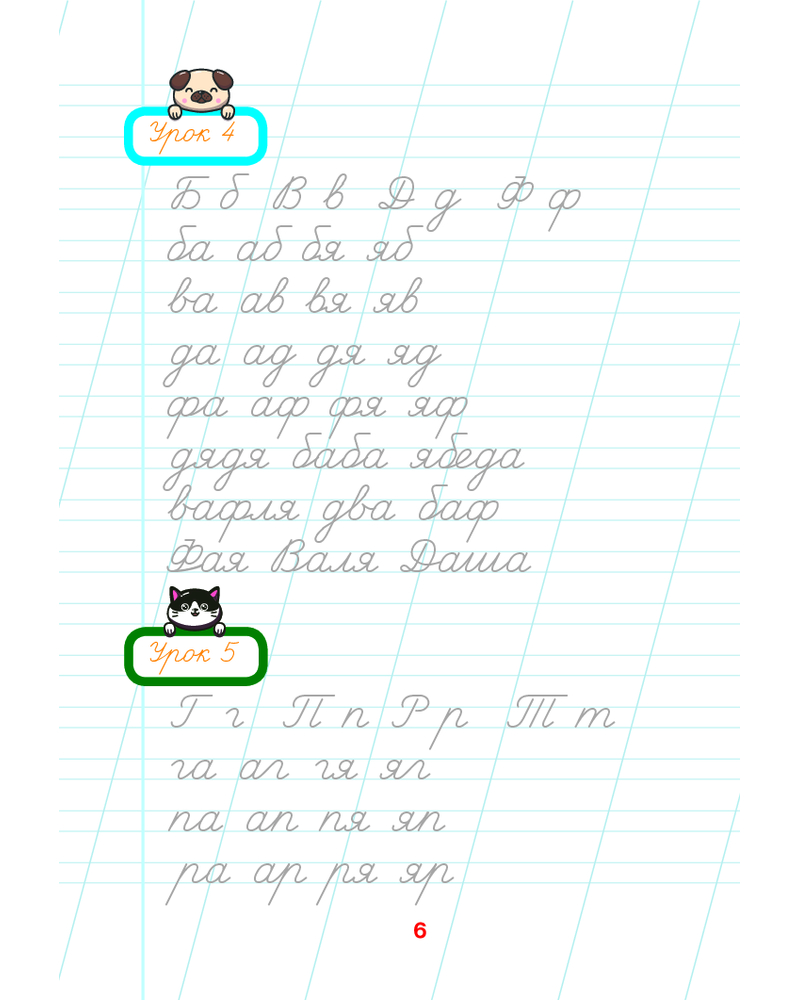 Урок 4
Б б В в Д д Ф ф
ба аб бя яб
ва ав вя яв
да ад дя яд
фа аф фя яф
дядя баба ябеда
вафля два баф
Фая Валя Даша
Урок 5
Г г П п Р р Т т
га аг гя яг
па ап пя яп
ра ар ря яр
6